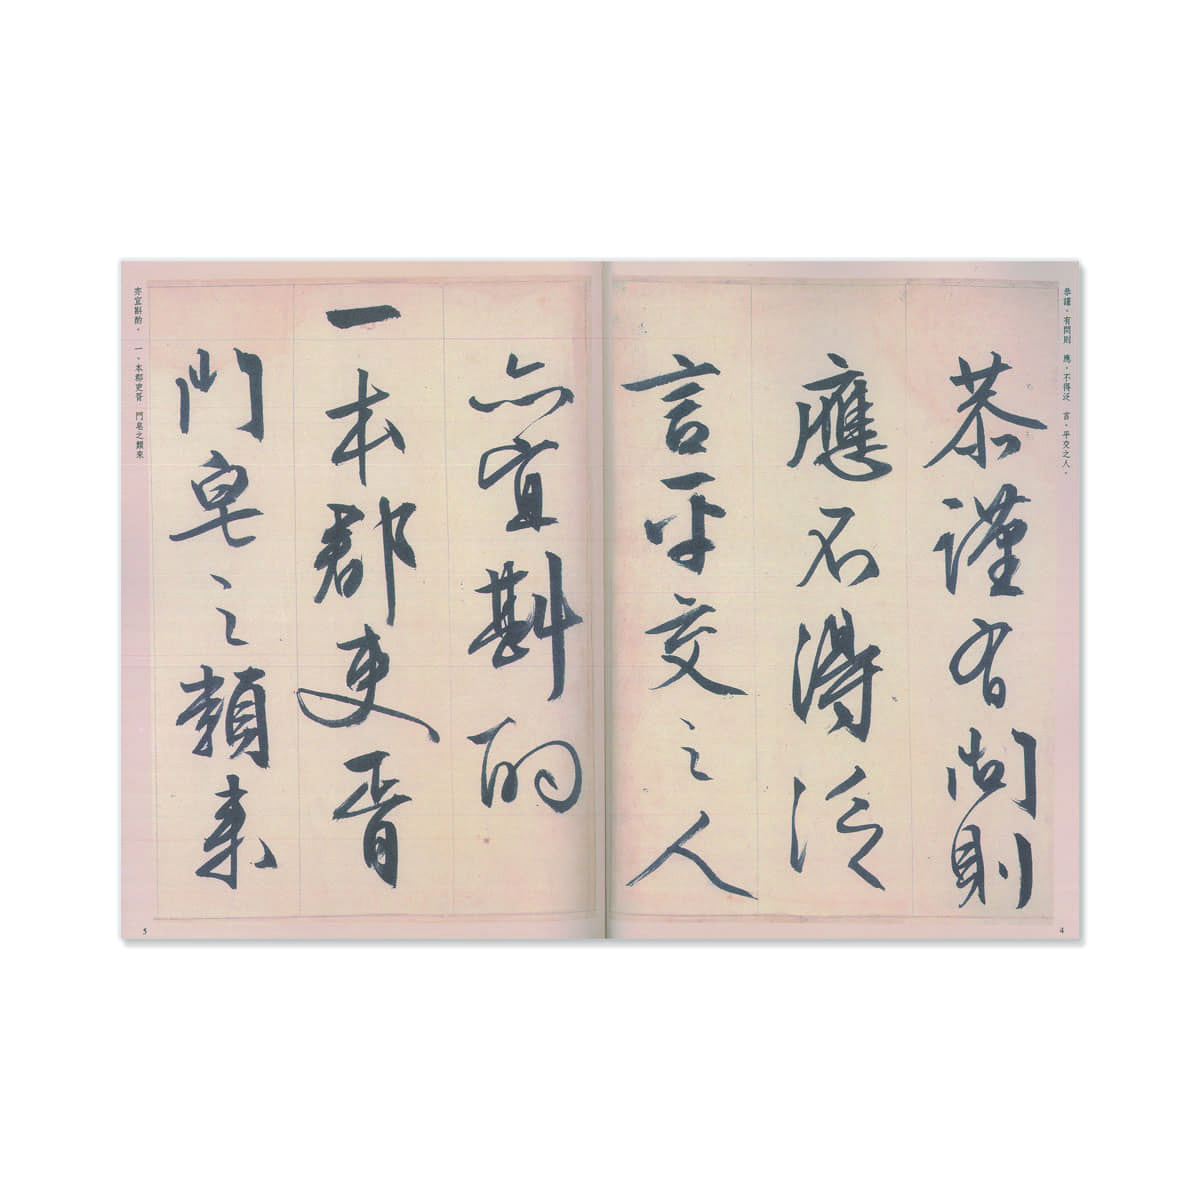 恭謹。有問則　應。不得泛　言。平交之人。
恭謹有問則
應不得泛
言平交之人
4
亦宜斟酌
一本郡吏胥
門皂之類來
亦宜斟酌。　一、本郡吏胥　門皂之類來
5